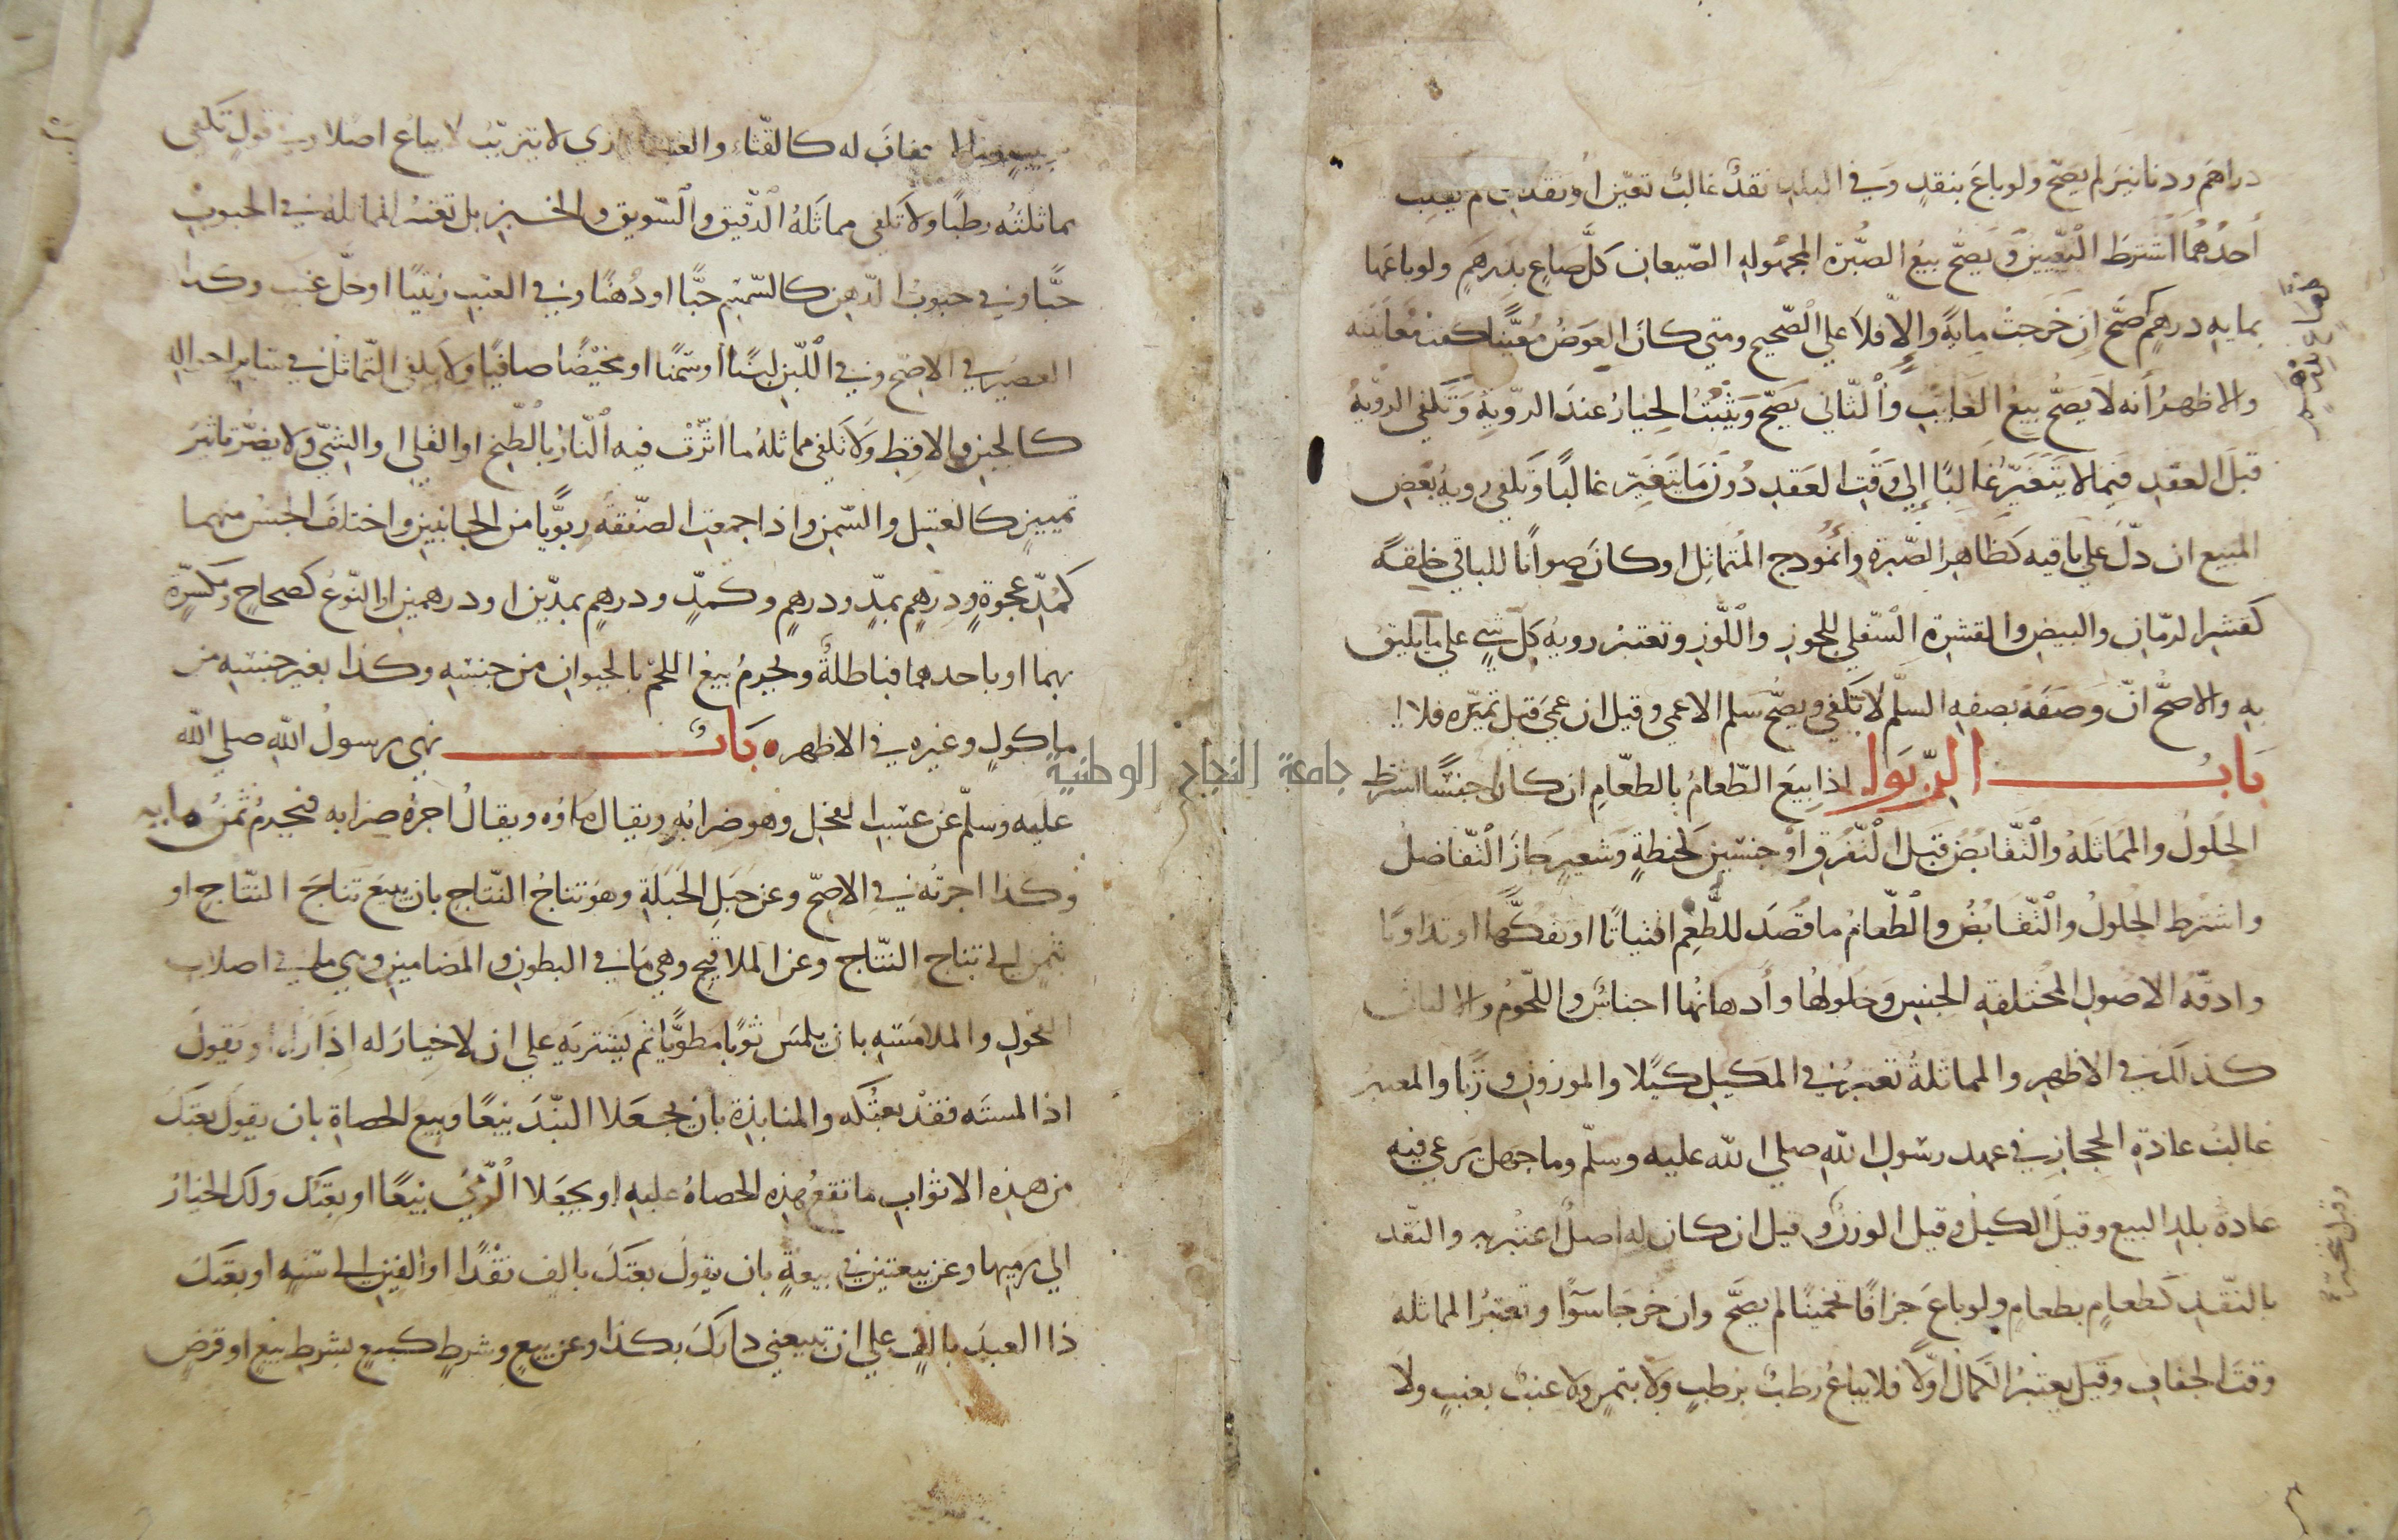 دراهم ودنانير لم يصح ولو باع بنقد وفي البلد نقد غالب تعين او نقدان لم يغلب
أحدهما اشترط التعيين ويصح بيع الصبرة المجهوله الصيعان كل صاع بدرهم ولو باعها
بمايه درهم كل صاع بدرهم صح ان خرجت مايه والا فلا علي الصحيح ومتي كان العوض معينا كفت معاينته
والاظهر أنه لا يصح بيع الغايب والثاني يصح ويثبت الخيار عند الروية وتكفي الروية
قبل العقد فيما لا يتغير غالبا إلي وقت العقد دون ما يتغير غالبا وتكفي روية بعض
المبيع ان دل علي باقيه كظاهر الصبرة وأنموذج المتماثل او كان صوانا للباقي خلقة
كقشر الرمان والبيض والقشرة السفلي للجوز واللوز وتعتبر روية كل شي علي ما يليق
به والاصح ان وصفه بصفه السلم لا تكفي ويصح سلم الاعمي وقيل ان عمي قبل تميزه فلا
باب الربوا اذا بيع الطعام بالطعام ان كانا جنسا اشترط
الحلول والمماثلة والتقابض قبل التفرق او جنسين كحنطة وشعير جاز التفاضل
واشترط الحلول والتقابض والطعام ما قصد للطعم اقتياتا او تفكها او تداويا
وادقة الاصول المختلفة الجنس وخلولها وأدهانها اجناس واللحوم والالبان
كذلك في الاظهر والمماثلة تعتبر في المكيل كيلا والموزون وزنا والمعتبر
غالب عادة الحجاز في عهد رسول الله صلي الله عليه وسلم وما جهل يرعي فيه
عادة بلد البيع وقيل الكيل وقيل الوزن وقيل ان كان له اصل اعتبر به والنقد
بالنقد كطعام بطعام ولو باع جزافا تخمينا لم يصح وان خرجا سوا وتعتبر المماثله
وقت الجفاف وقيل يعتبر الكمال اولا فلا يباع رطب برطب ولا بتمر ولا عنب بعنب ولا
بزبيب وما لا جفاف له كالقثاء والعنب الذي لا يتزبب لا يباع اصلا وفي قول تكفي
مماثلته رطبا ولا تكفي مماثلة الدقيق والسويق والخبز بل تعتبر المماثلة في الحبوب
حبا وفي حبوب الدهن كالسمسم حبا او دهنا وفي العنب زبيبا او خل عنب وكذا
العصير في الاصح وفي اللبن لبنا او سمنا او مخيضا صافيا ولا يكفي التماثل في ساير احواله
كالجبن والاقط ولا تكفي مماثلة ما اثرت فيه النار بالطبخ او القلي او الشي ولا يضر تاثير
تمييز كالعسل والسمن واذا جمعت الصفقة ربويا من الجانبين واختلف الجنس منهما
كمد عجوة ودرهم بمد ودرهم وكمد ودرهم بمدين او درهمين او النوع كصحاح ومكسرة
بهما او باحدهما فباطلة ويحرم بيع اللحم بالحيوان من جنسه وكذا بغير جنسه من
ماكول وغيره في الاظهر باب نهي رسول الله صلي الله
عليه وسلم عن عسب الفحل وهو ضرابه ويقال ماؤه ويقال اجرة ضرابه فيحرم ثمن مايه
وكذا اجرته في الاصح وعن حبل الحبلة وهو نتاج النتاج بان يبيع نتاج النتاج او
بثمن الي نتاج النتاج وعن الملاقيح وهي ما في البطون والمضامين وهي ما في اصلاب
الفحول والملامسه بان يلمس ثوبا مطويا ثم يشتريه علي ان لا خيار له إذا رآه او يقول
اذا لمسته فقد بعتكه والمنابذة بان يجعلا النبذ بيعا وبيع الحصاة بان يقول بعتك
من هذه الاثواب ما تقع هذه الحصاة عليه او يجعلا الرمي بيعا او بعتك ولك الخيار
الي رميها وعن بيعتين في بيعة بان يقول بعتك بالف نقدا او الفين الي سنه او بعتك
ذا العبد بالف علي ان تبيعني دارك بكذا وعن بيع وشرط كبيع بشرط بيع او قرض
جامعة النجاح الوطنية